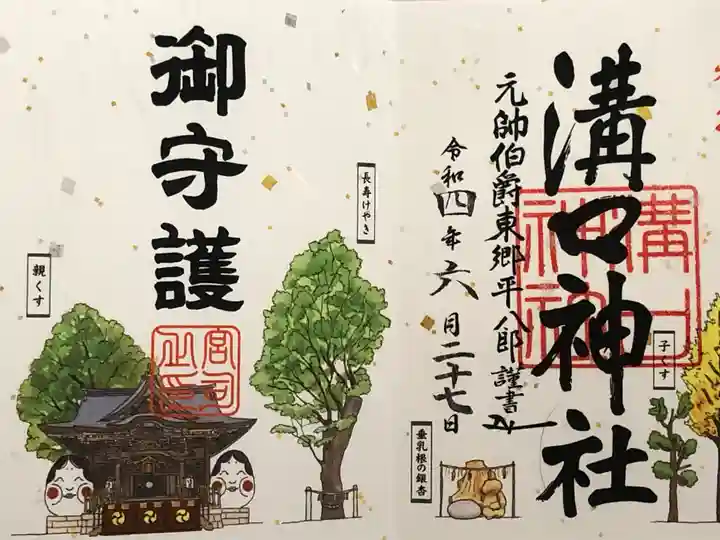 溝口神社
元帥伯爵東郷平八郎謹書
令和四年六月二十七日
子くす
垂乳根の銀杏
御守護
長寿けやき
親くす
溝口神社
宮司之印